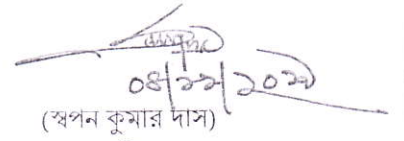 ০৪/১১/২০১৯
(স্বপন কুমার দাস)